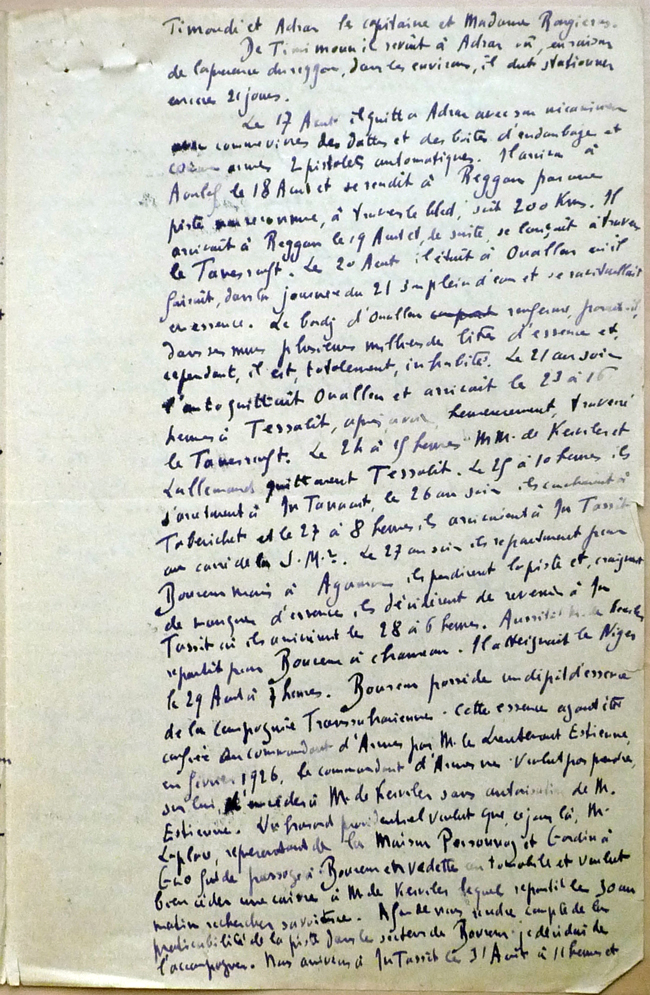 Timoudi et Adrar le capitaine et Madame
De Timimoun il revint à Adrar où, en raison
de la présence du reggou, dans les environs, il dut stationner
encore 21 jours.
Le 17 Août il quitta Adrar avec son mécanicien
comme vivres des dattes et des boîtes d'endaubage et
comme armes 2 pistolets automatiques. Il arriva à
Aoulef le 18 Août et se rendit à Reggan par une
piste reconnue, à travers le bled, soit 200 Kms. Il
arrivait à Reggan le 19 Août et, de suite, se lançait à travers
le Tanezrouft. Le 20 Août il était à Ouallen où il
faisait, dans la journée du 21 son plein d'eau et se ravitaillait
en essence. Le bordj d'Ouallen renferme,
dans ses murs plusieurs milliers de litres d'essence et,
cependant, il est, totalement, inhabité. Le 21 au soir
l'auto quittait Ouallen et arrivait le 23 à 16
heures à Tessalit, après avoir, heureusement, traversé
le Tanezrouft. Le 24 à 15 heures MM. de Kersler et
Lallemand quittèrent Tessalit. Le 25 à 10 heures ils
s'arrêtèrent à In Tassait, le 26 au soir ils couchaient à
Tabrichat et le 27 à 8 heures ils arrivaient à In Tassit
au carré de la S.M. Le 27 au soir ils repartirent pour
Bourem mais à Agamor ils perdirent la piste et, craignant
de manquer d'essence ils décidèrent de revenir à In
Tassit où ils arrivèrent le 28 à 6 heures. Aussitôt M. de Kersler
repartit pour Bourem à chameau. Il atteignait le Niger
le 29 Août à 7 heures. Bourem possède un dépôt d'essence
de la Compagnie Transsaharienne. Cette essence ayant été
confiée au commandant d'Armes par M. le Lieutenant Estienne,
en février 1926, le commandant d'Armes ne voulut pas prendre,
sur lui, d'en céder à M. de Kersler sans autorisation de M.
Estienne. Un hasard providentiel voulut que, ce jour là, M.
Leplou, représentant de la Maison Personnaz et Gardin à
Gao fut de passage à Bourem en vedette automobile et voulut
bien céder une caisse à M. de Kersler lequel repartit le 30 au
matin rechercher sa voiture. Afin de nous rendre compte de la
praticabilité de la piste dans le secteur de Bourem je décidai de
l'accompagner. Nous arrivons à In Tassit le 31 Août à 11 heures et